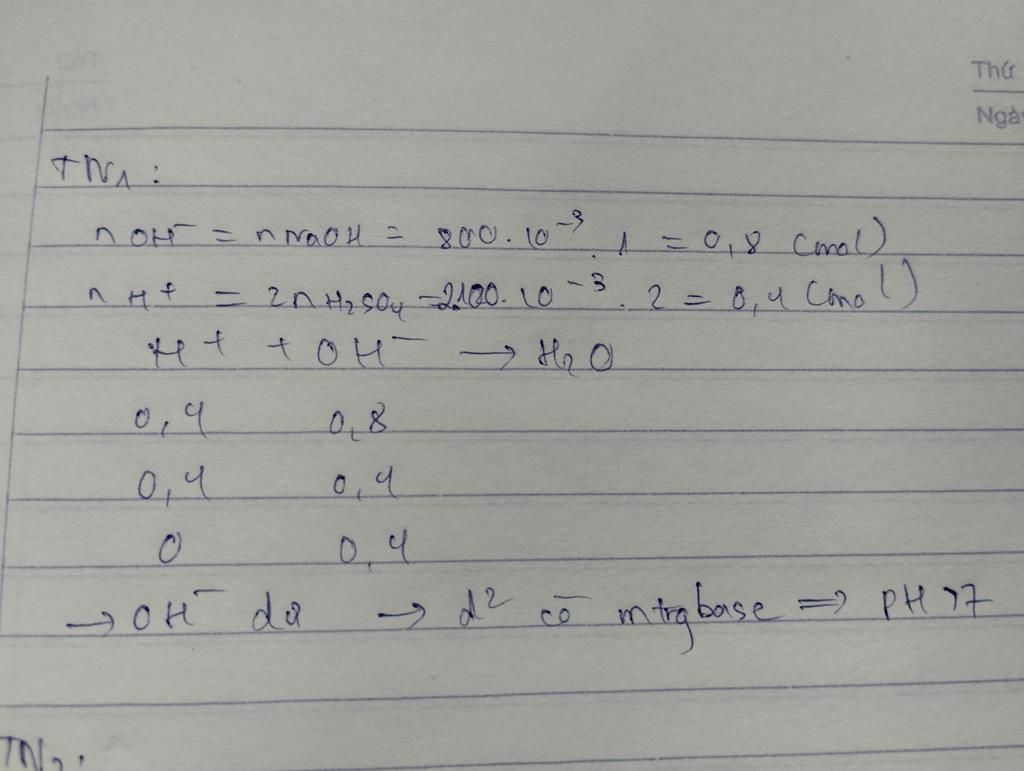 Thứ
Ngày
TN1:
nOH⁻ = nNaOH = 800.10⁻³.1 = 0,8 (mol)
nH⁺ = 2nH₂SO₄ = 2.100.10⁻³.2 = 0,4 (mol)
H⁺ + OH⁻ → H₂O
0,4 0,8
0,4 0,4
0 0,4
→ OH⁻ dư → d² có mtrg base ⇒ pH >7
TN2: